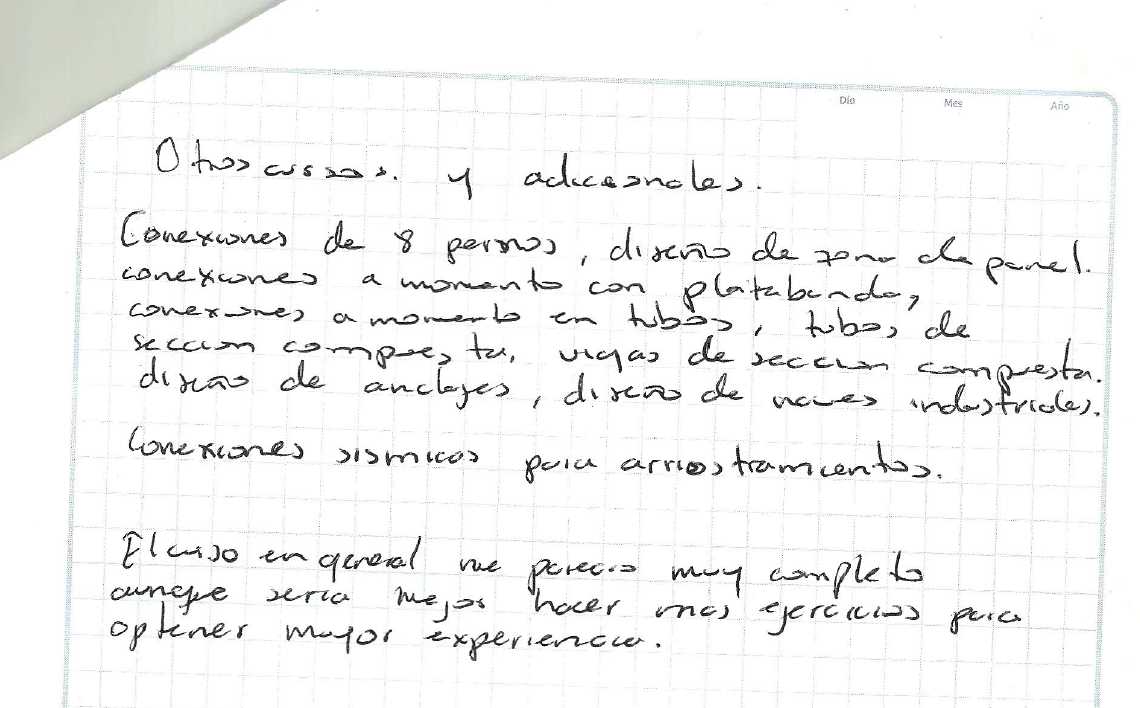 Día Mes Año
Otros cursos. y adicionales.
Conexiones de 8 pernos, diseño de zona de panel.
conexiones a momento con platabanda,
conexiones a momento en tubos, tubos de
seccion compuesta, vigas de seccion compuesta.
diseño de anclajes, diseño de naves industriales.
Conexiones sismicas para arriostramientos.
El curso en general me parecio muy completo
aunque seria mejor hacer mas ejercicios para
optener mayor experiencia.